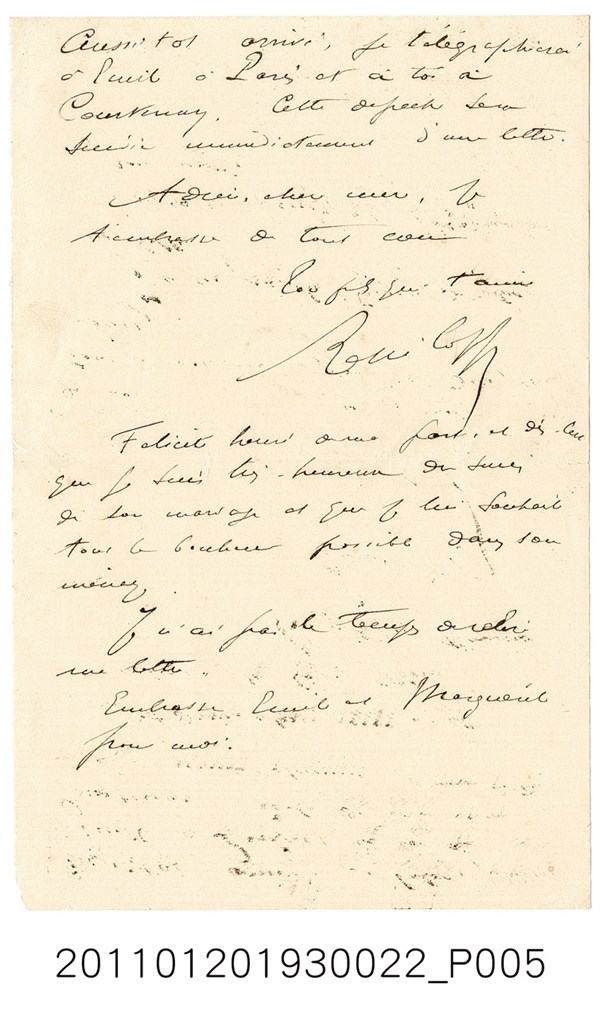 Aussitot arrivé, je télégraphierai
à Emil à Paris et à toi à
Courtenay. Cette depech sera
suivie immédiatement d'une lettre.
Adieu, cher mere, je
t'embrasse de tout coeur
Ton fils qui t'aime
René Coppi
Felicite henri de ma part, et dis-lui
que je suis très-heureux du succès
de son mariage et que je lui souhait
tout le bonheur possible dans son
ménage
Je n'ai pas le temps de relire
ma lettre.
Embrasse Emil et Marguerit
pour moi.
201101201930022_P005